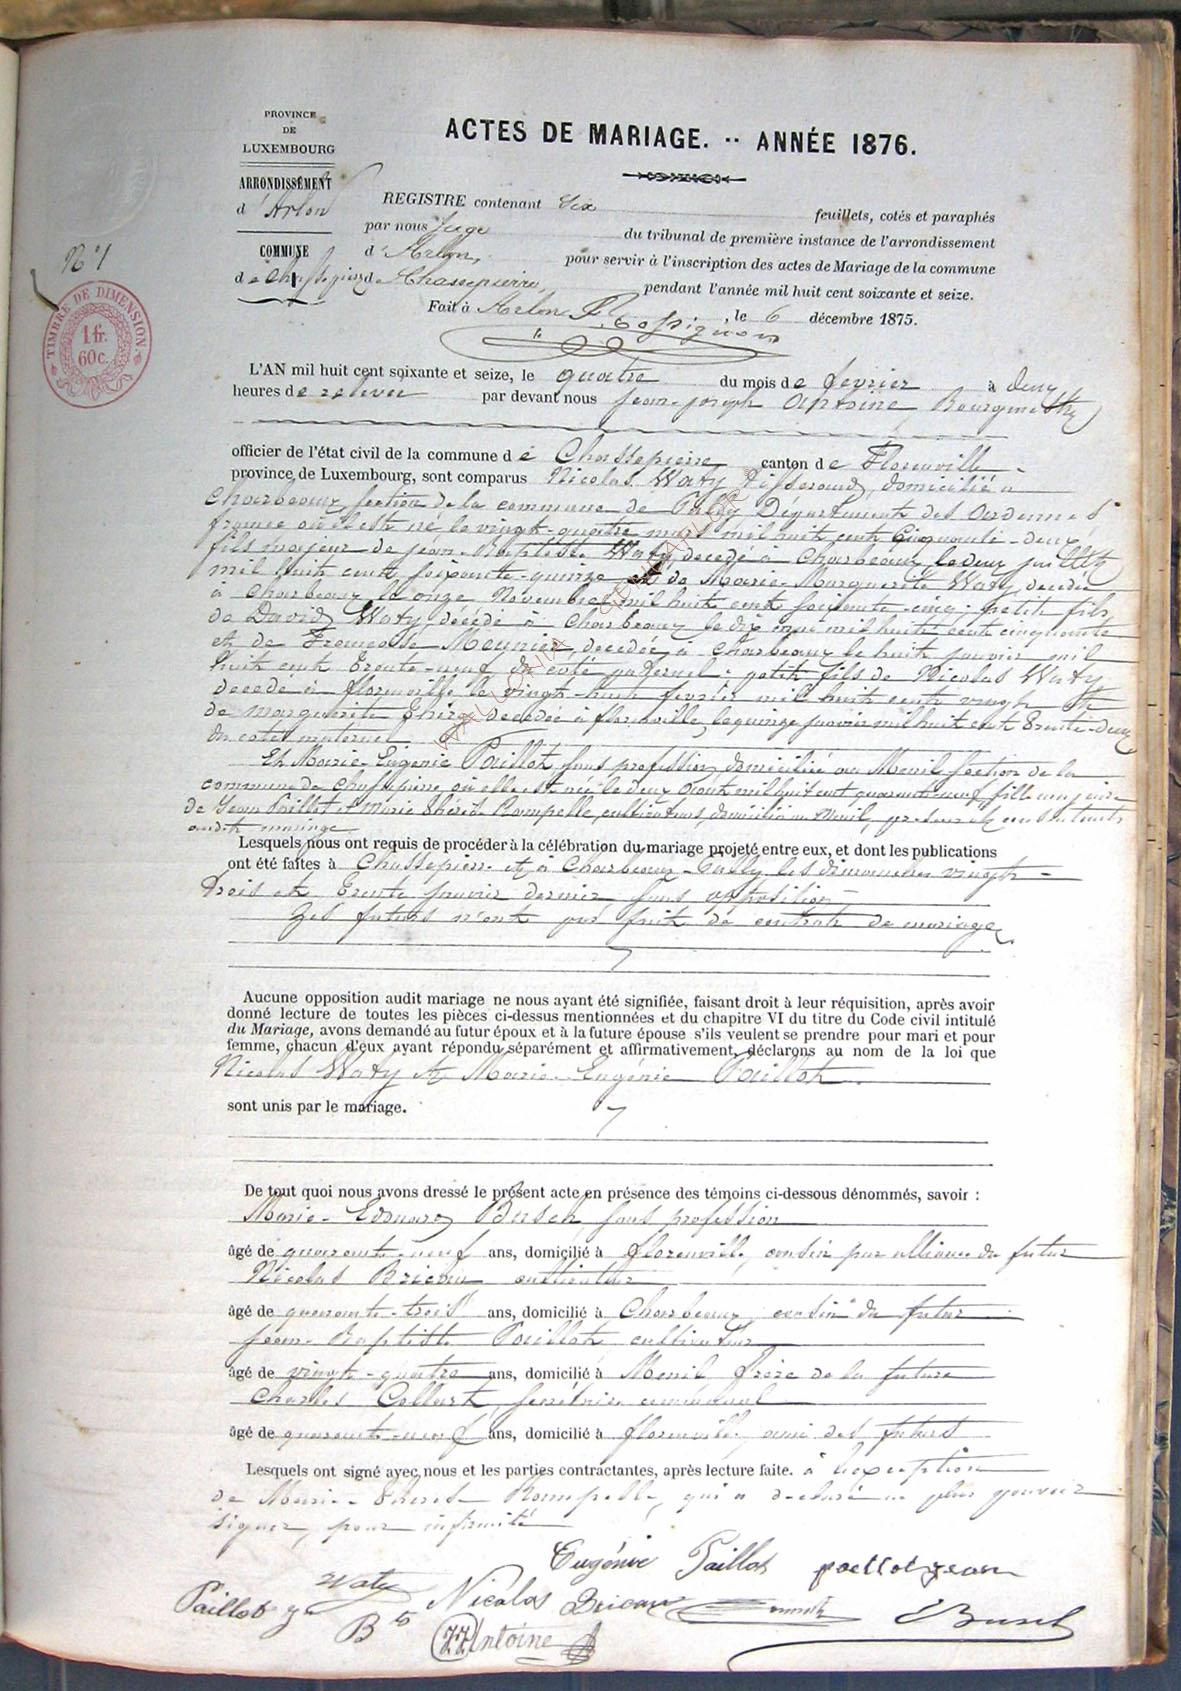 PROVINCE
DE
LUXEMBOURG
ARRONDISSEMENT
d'Arlon
COMMUNE
de Chassepierre
N°1
TIMBRE DE DIMENSION
1 fr.
60 c.
ACTES DE MARIAGE. -- ANNÉE 1876.
REGISTRE contenant Six feuillets, cotés et paraphés
par nous Juge du tribunal de première instance de l'arrondissement
d'Arlon, pour servir à l'inscription des actes de Mariage de la commune
de Chassepierre, pendant l'année mil huit cent soixante et seize.
Fait à Arlon, le 6 décembre 1875.
L'AN mil huit cent soixante et seize, le quatre du mois de février à deux
heures de relevée par devant nous Jean-Joseph Antoine Bourgmestre
officier de l'état civil de la commune de Chassepierre canton de Florenville
province de Luxembourg, sont comparus Nicolas Waty Tisserand, domicilié à
Charbeaux, section de la commune de Département des Ardennes
france où il est né le vingt-quatre mil huit cent Cinquante-deux
fils majeur de Jean-Baptiste Waty décédé à Charbeaux le deux juillet
mil huit cent soixante-quinze et de Marie-Marguerite Waty, décédée
à Charbeaux le onze Novembre mil huit cent soixante-cinq; petit fils
de David Waty, décédé à Charbeaux le dix mai mil huit cent cinquante
et de Françoise Meunier, décédée à Charbeaux le huit janvier mil
huit cent trente-neuf du coté paternel; petit fils de Nicolas Waty
décédé à florenville le vingt-huit février mil huit cent vingt et
de marguerite décédée à florenville, le quinze janvier mil huit cent trente-deux
du coté maternel
Et Marie-Eugénie Paillot sans profession, domiciliée au Menil section de la
commune de Chassepierre où elle est née le deux août mil huit cent quarante-neuf, fille majeure
de Jean Paillot et Marie Thérèse Rompelle, cultivateurs, domiciliés au Menil, présents et consentants
audit mariage
Lesquels nous ont requis de procéder à la célébration du mariage projeté entre eux, et dont les publications
ont été faites à Chassepierre et à Charbeaux- les dimanches vingt-
trois et trente janvier dernier sans opposition
Les futurs n'ont pas fait de contrat de mariage
Aucune opposition audit mariage ne nous ayant été signifiée, faisant droit à leur réquisition, après avoir
donné lecture de toutes les pièces ci-dessus mentionnées et du chapitre VI du titre du Code civil intitulé
du Mariage, avons demandé au futur époux et à la future épouse s'ils veulent se prendre pour mari et pour
femme, chacun d'eux ayant répondu séparément et affirmativement, déclarons au nom de la loi que
Nicolas Waty et Marie-Eugénie Paillot
sont unis par le mariage.
De tout quoi nous avons dressé le présent acte en présence des témoins ci-dessous dénommés, savoir :
Marie-Edouard Busch, sans profession
âgé de quarante-neuf ans, domicilié à florenville, cousin par alliance du futur
Nicolas Bricou cultivateur
âgé de quarante-trois ans, domicilié à Charbeaux, cousin du futur
Jean-Baptiste Paillot cultivateur
âgé de vingt-quatre ans, domicilié à Menil frère de la future
Charles Collart, secrétaire communal
âgé de quarante-neuf ans, domicilié à florenville, ami des futurs
Lesquels ont signé avec nous et les parties contractantes, après lecture faite. à l'exception
de Marie-Thérèse Rompelle, qui a déclaré ne plus pouvoir
signer, pour infirmité
Eugénie Paillot paillot jean
Waty Nicolas Bricou
Paillot Jn Bte Busch
JJ Antoine